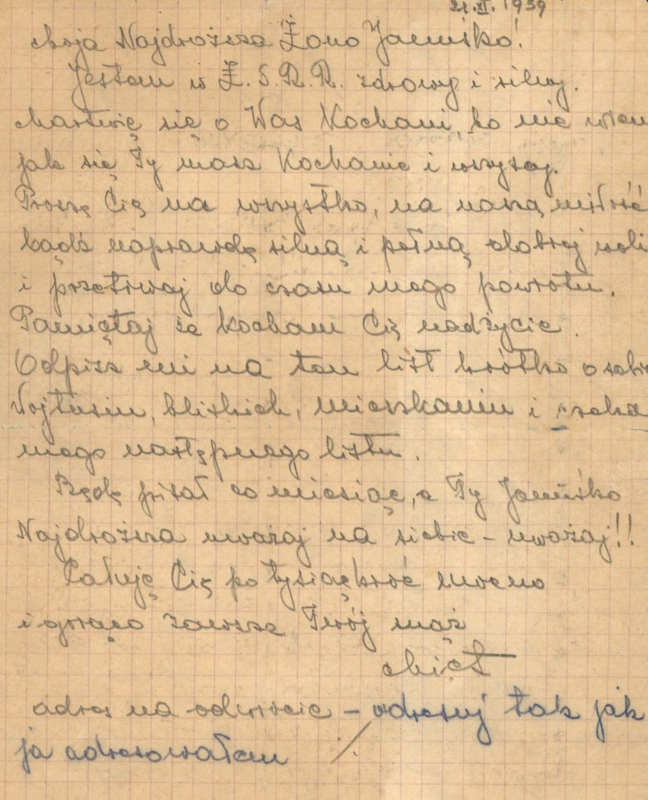 21. XI. 1939
Moja Najdroższa Żono Janeńko!
Jestem w Z.S.R.R. zdrowy i silny.
Martwię się o Was Kochani, bo nie wiem
jak się Ty masz Kochanie i wszyscy.
Proszę Cię na wszystko, na naszą miłość
bądź naprawdę silną i pełną dobrej woli
i przetrwaj do czasu mego powrotu.
Pamiętaj że kocham Cię nadżycie.
Odpisz mi na ten list krótko o sobie
Wojtusiu, bliskich, mieszkaniu i czekaj
mego następnego listu.
Będę pisał co miesiąc, a Ty
Najdroższa uważaj na siebie – uważaj!!
Całuję Cię po tysiąckroć mocno
i gorąco zawsze Twój mąż
adres na odwrocie – adresuj tak jak
ja adresowałem